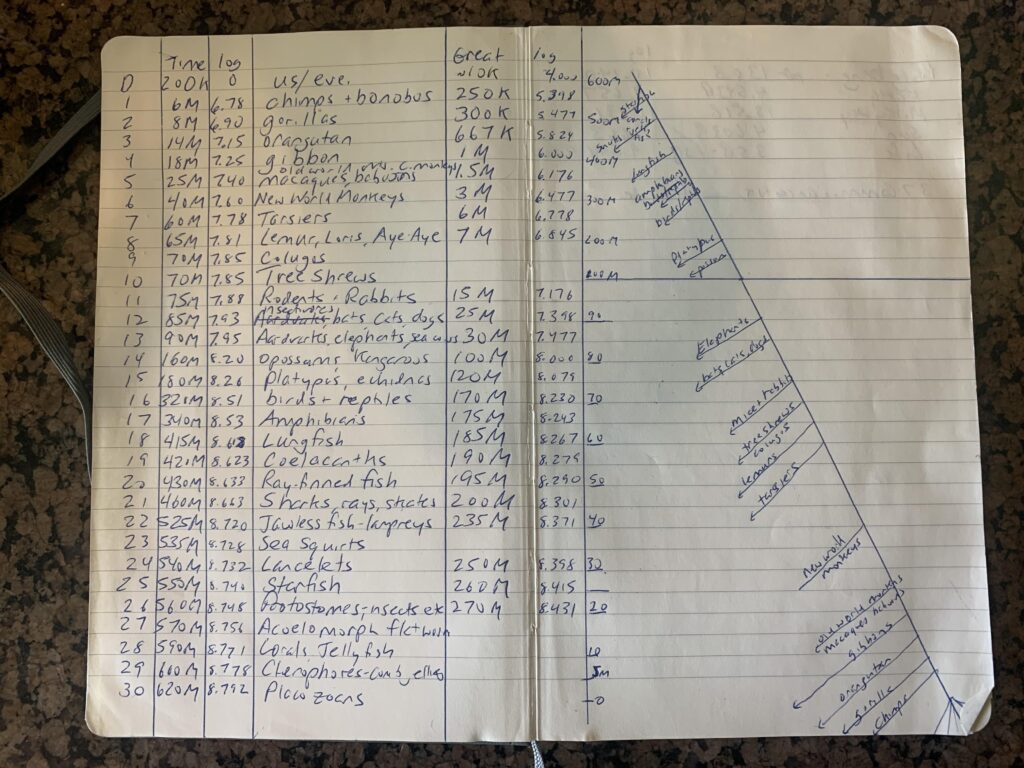 Time log Great log
0 200K 0 us/eve. ~10K 4.000 600M
1 6M 6.78 chimps + bonobos 250K 5.398
2 8M 6.90 gorillas 300K 5.477 500M
3 14M 7.15 orangutan 667K 5.824
4 18M 7.25 gibbon 1M 6.000 400M
old world
5 25M 7.40 macaques, baboons 1.5M 6.176
6 40M 7.60 New World Monkeys 3M 6.477 300M
7 60M 7.78 Tarsiers 6M 6.778
8 65M 7.81 Lemur, Loris, Aye-Aye 7M 6.845 200M
9 70M 7.85 Colugos
10 70M 7.85 Tree Shrews 100M
11 75M 7.88 Rodents + Rabbits 15M 7.176
insectivores
12 85M 7.93 bats, cats, dogs 25M 7.398 90
13 90M 7.95 Aardvarks, elephants, sea cows 30M 7.477
14 160M 8.20 opossums, Kangaroos 100M 8.000 80
15 180M 8.26 Platypus, echidnas 120M 8.079
16 320M 8.51 birds + reptiles 170M 8.230 70
17 340M 8.53 Amphibians 175M 8.243
18 415M Lungfish 185M 8.267 60
19 420M 8.623 Coelacanths 190M 8.279
20 430M 8.633 Ray-finned fish 195M 8.290 50
21 460M 8.663 Sharks, rays, skates 200M 8.301
22 525M 8.720 Jawless fish-lampreys 235M 8.371 40
23 535M 8.728 Sea Squirts
24 540M 8.732 Lancelets 250M 8.398 30
25 550M 8.740 Starfish 260M 8.415
26 560M 8.748 Protostomes-insects etc 270M 8.431 20
27 570M 8.756 Acoelomorph flatworm
28 590M 8.771 Corals Jellyfish 10
29 600M 8.778 Ctenophores-comb jellies 5M
30 620M 8.792 Placozoans 0
lungfish
amphibians
birds
Platypus
Elephants
bats, cats, dogs
mice + rabbits
treeshrews
colugos
lemurs
tarsiers
new world
monkeys
old world monkeys
gibbins
orangutan
gorilla
chimps